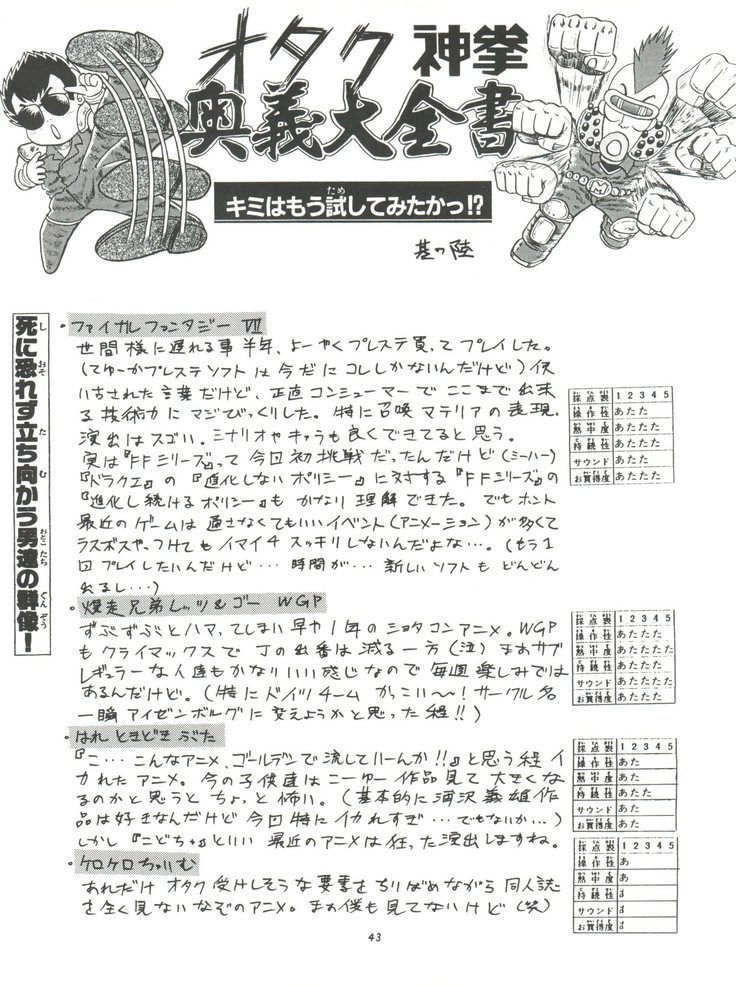 オタク神拳
奥義大全書
キミはもう試してみたかっ!?
其の陸
死に恐れず立ち向かう男達の群像!
・ファイナルファンタジー VII
世間様に遅れる事半年、よーやくプレステ買ってプレイした。
(てゆーかプレステソフトは今だにコレしかないんだけど)使
い古された言葉だけど、正直コンシューマーでここまで出来
る技術力にマジびっくりした。特に召喚マテリアの表現、
演出はスゴい。シナリオやキャラも良くできてると思う。
実は『FFシリーズ』って今回初挑戦だったんだけど(ミーハー)
『ドラクエ』の『進化しないポリシー』に対する『FFシリーズ』の
『進化し続けるポリシー』もかなり理解できた。でもホント
最近のゲームは通さなくてもいいイベント(アニメーション)が多くて
ラスボスやっつけてもイマイチスッキリしないんだよな…。(もう1
回プレイしたいんだけど…時間が…新しいソフトもどんどん
出るし…)
採点表 1 2 3 4 5
操作性 あたた
熱中度 あたたた
持続性 あたたた
サウンド あたた
お買得度 あたたた
・爆走兄弟レッツ&ゴー WGP
ずぶずぶとハマってしまい早や1年のショタコンアニメ。WGP
もクライマックスでJの出番は減る一方(泣)まあサブ
レギュラーな人達もかなりいい感じなので毎週楽しみでは
あるんだけど。(特にドイツチームかっこい〜!サークル名
一瞬アイゼンボルグに変えようかと思った程!!)
採点表 1 2 3 4 5
操作性 あたたた
熱中度 あたたたた
持続性 あたたた
サウンド あたたたた
お買得度 あたたた
・はれときどきぶた
『こ…こんなアニメ、ゴールデンで流していーんか!!』と思う程イ
カれたアニメ。今の子供達はこーゆー作品見て大きくな
るのかと思うとちょっと怖い。(基本的に湖沢義雄作
品は好きなんだけど今回特にイカれすぎ…でもないか…)
しかし『こどちゃ』といい最近のアニメは狂った演出しますね。
採点表 1 2 3 4 5
操作性 あた
熱中度 あたた
持続性 あたた
サウンド あた
お買得度 あたた
・ケロケロちゃいむ
あれだけオタク受けしそうな要素をちりばめながら同人誌
を全く見ないなぞのアニメ。まあ僕も見てないけど(笑)
採点表 1 2 3 4 5
操作性 あ
熱中度 あ
持続性
サウンド
お買得度
43